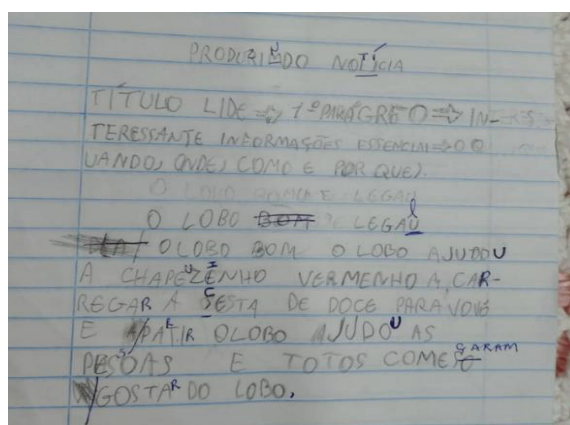 PRODUZINDO NOTÍCIA
TÍTULO LIDE => 1º PARÁGRFO => IN-
TERESSANTE INFORMAÇÕES ESSENCIAI => O Q
UANDO, ONDE, COMO E POR QUE).
O LOBO LEGAU
O LOBO BOM É LEGAL
O LOBO BOM O LOBO AJUDOU
A CHAPEUZINHO VERMENHO A CAR-
REGAR A SESTA DE DOCE PARA VOVÓ
E APATIR O LOBO AJUDOU AS
PESSOAS E TOTOS COMESGARAM
GOSTAR DO LOBO.